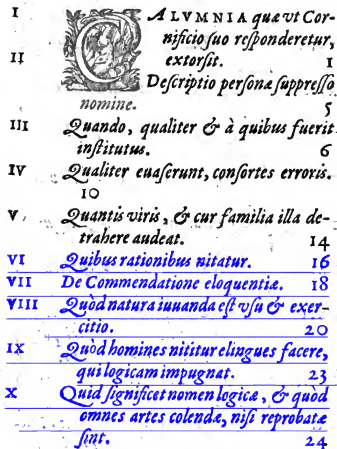 I CALVMNIA quæ vt Cor-
nificio suo responderetur,
extorsit. 1
II Descriptio personæ suppresso
nomine. 5
III Quando, qualiter & à quibus fuerit
institutus. 6
IV Qualiter euaserunt, consortes erroris.
10
V Quantis viris, & cur familia illa de-
trahere audeat. 14
VI Quibus rationibus nitatur. 16
VII De Commendatione eloquentiæ. 18
VIII Quòd natura iuuanda est vsu & exer-
citio. 20
IX Quòd homines nititur elingues facere,
qui logicam impugnat. 23
X Quid significet nomen logicæ, & quòd
omnes artes colendæ, nisi reprobatæ
sint. 24